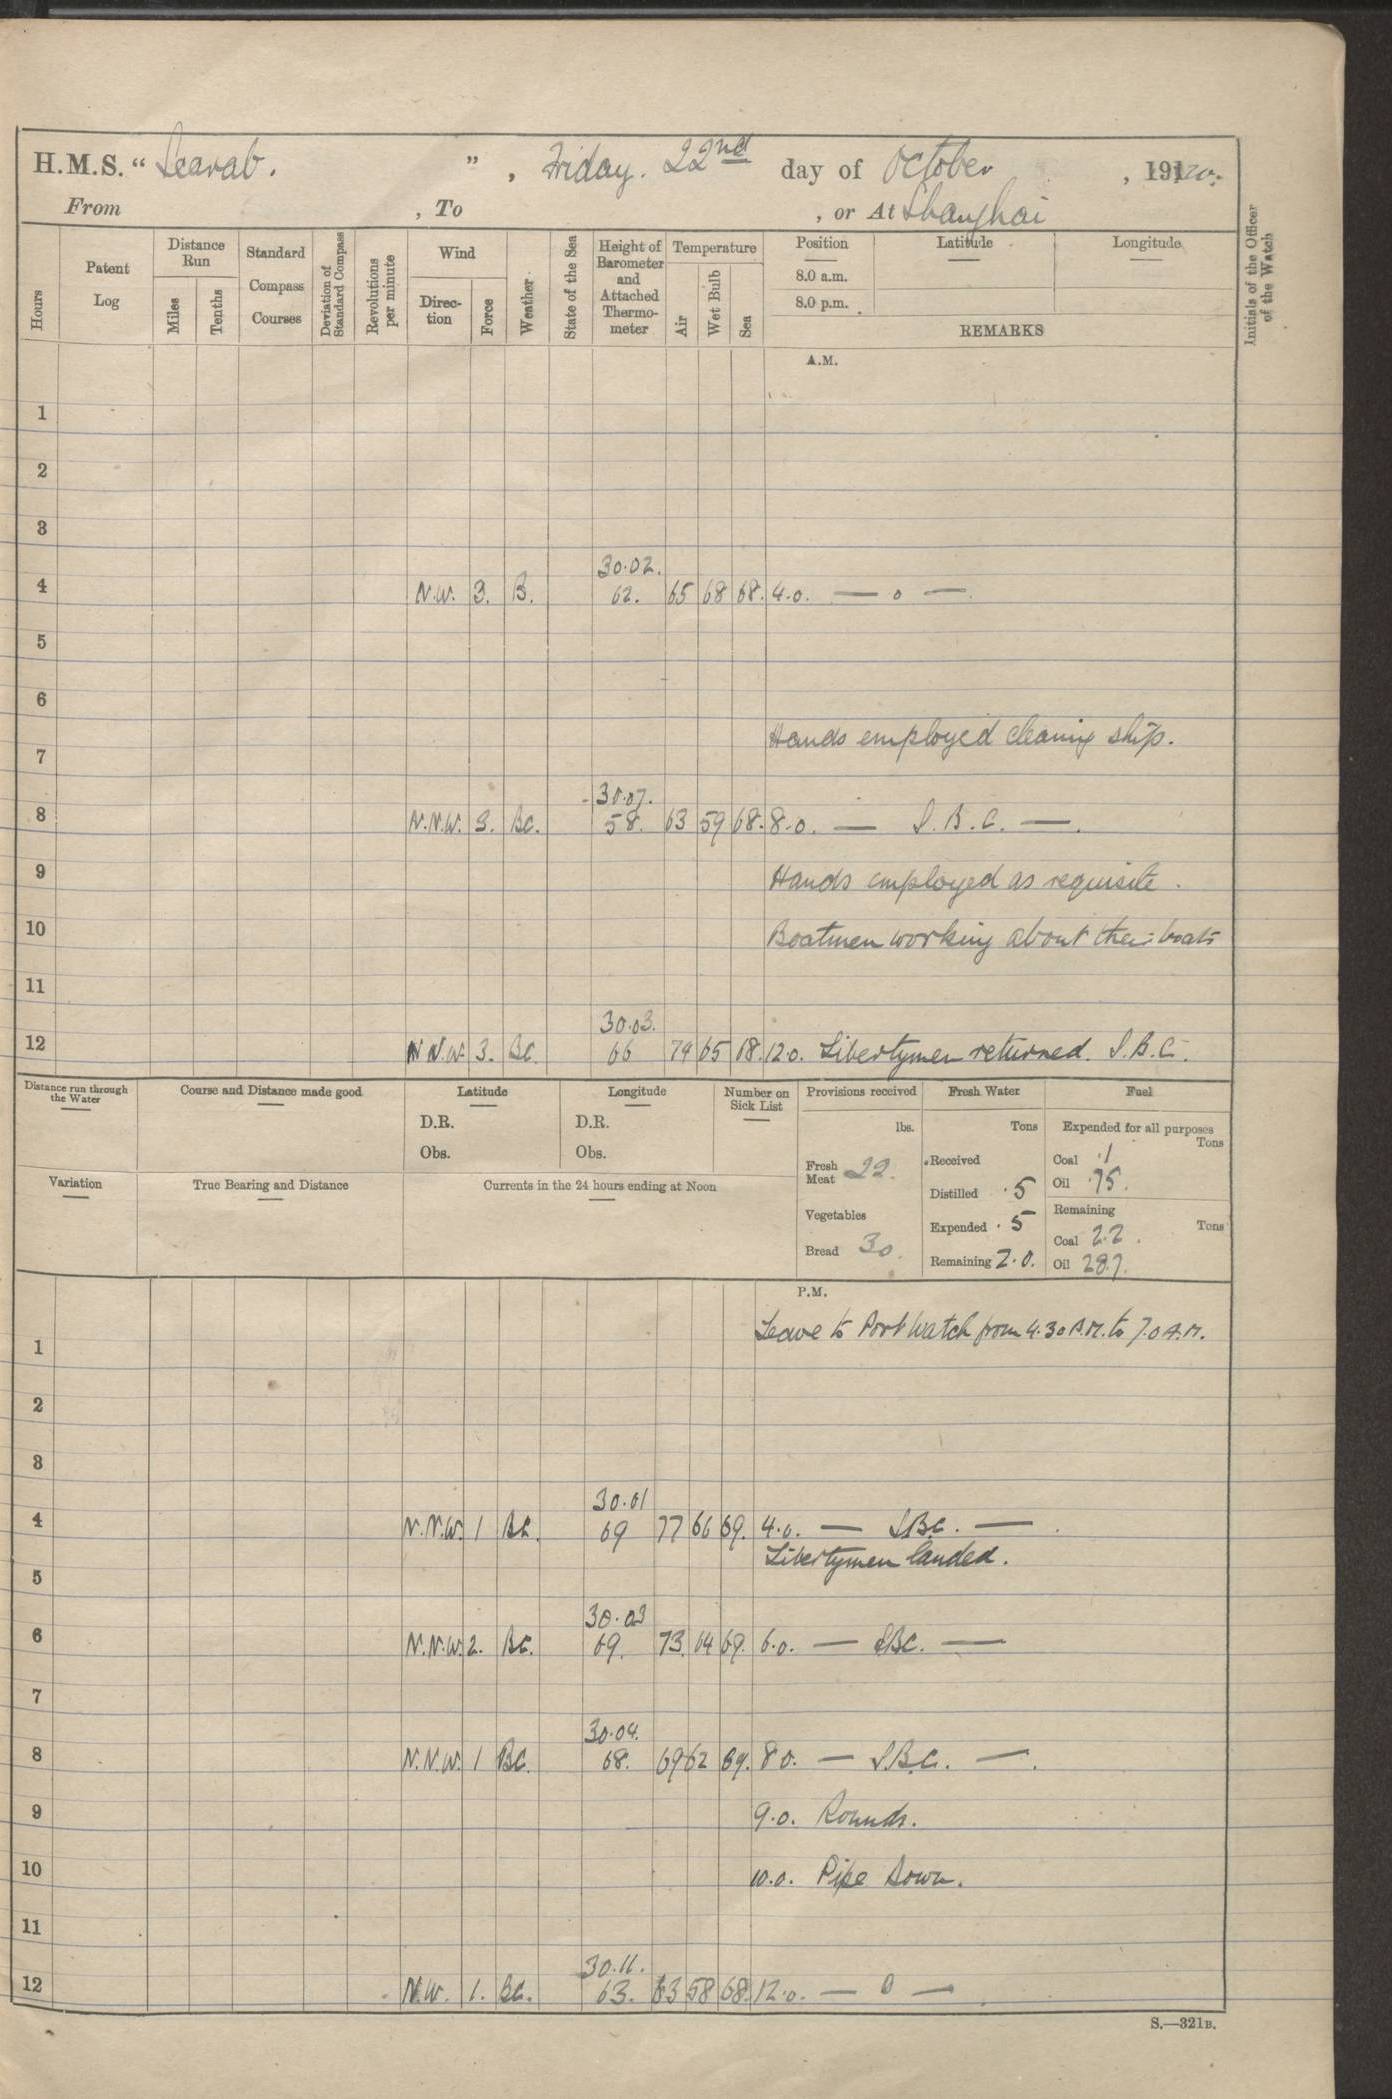 H.M.S. " Scarab. ", Friday. 22nd day of October, 1920.
From , To , or At Shanghai
Hours
Patent Log
Distance Run
Miles
Tenths
Standard Compass Courses
Deviation of Standard Compass
Revolutions per minute
Wind
Direc-tion
Force
Weather
State of the Sea
Height of Barometer and Attached Thermo-meter
Temperature
Air
Wet Bulb
Sea
Position Latitude Longitude
8.0 a.m.
8.0 p.m.
REMARKS
Initials of the Officer of the Watch
A.M.
1
2
3
30.02.
4 N.W. 3. B. 62. 65 68 68. 4.0. — o —
5
6
Hands employed cleaning ship.
7
30.07.
8 N.N.W. 3. BC. 58. 63 59 68. 8.0. — S.B.C. —.
9 Hands employed as requisite.
10 Boatmen working about their boats
11
30.03.
12 N.N.W. 3. BC. 66 74 65 68. 12.0. Libertymen returned. S.B.C.
Distance run through the Water
Course and Distance made good
Latitude
D.R.
Obs.
Longitude
D.R.
Obs.
Number on Sick List
Provisions received
lbs.
Fresh Meat 22.
Vegetables
Bread 30.
Fresh Water
Tons
Received
Distilled .5
Expended .5
Remaining 2.0.
Fuel
Expended for all purposes
Tons
Coal .1
Oil .75.
Remaining
Tons
Coal 2.2.
Oil 28.7.
Variation
True Bearing and Distance
Currents in the 24 hours ending at Noon
P.M.
Leave to Port Watch from 4.30 A.M. to 7.0 A.M.
1
2
3
30.01
4 N.N.W. 1 BC. 69 77 66 69. 4.0. — SBC. —.
Libertymen landed.
5
30.03
6 N.N.W. 2. BC. 69. 73. 64 69. 6.0. — SBC. —
7
30.04.
8 N.N.W. 1 BC. 68. 69 62 69. 8.0. — S.B.C. —.
9 9.0. Rounds.
10 10.0. Pipe Down.
11
30.11.
12 N.W. 1. BC. 63. 63 58 68. 12.0. — o —
S.—321B.